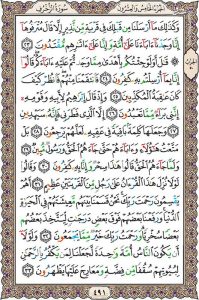 سُورَةُ الزُّخْرُفِ الجُزْءُ الخَامِسُ وَالعِشْرُونَ
وَكَذَٰلِكَ مَآ أَرْسَلْنَا مِن قَبْلِكَ فِي قَرْيَةٍ مِّن نَّذِيرٍ إِلَّا قَالَ مُتْرَفُوهَآ
إِنَّا وَجَدْنَآ ءَابَآءَنَا عَلَىٰٓ أُمَّةٍ وَإِنَّا عَلَىٰٓ ءَاثَٰرِهِم مُّقْتَدُونَ
٢٣ ۞ قَٰلَ أَوَلَوْ جِئْتُكُم بِأَهْدَىٰ مِمَّا وَجَدتُّمْ عَلَيْهِ ءَابَآءَكُمْ قَالُوٓاْ
إِنَّا بِمَآ أُرْسِلْتُم بِهِۦ كَٰفِرُونَ ٢٤ فَٱنتَقَمْنَا مِنْهُمْ فَٱنظُرْ كَيْفَ
كَانَ عَٰقِبَةُ ٱلْمُكَذِّبِينَ ٢٥ وَإِذْ قَالَ إِبْرَٰهِيمُ لِأَبِيهِ وَقَوْمِهِۦٓ
إِنَّنِي بَرَآءٌ مِّمَّا تَعْبُدُونَ ٢٦ إِلَّا ٱلَّذِي فَطَرَنِي فَإِنَّهُۥ سَيَهْدِينِ
٢٧ وَجَعَلَهَا كَلِمَةَۢ بَاقِيَةً فِي عَقِبِهِۦ لَعَلَّهُمْ يَرْجِعُونَ ٢٨
بَلْ مَتَّعْتُ هَٰٓؤُلَآءِ وَءَابَآءَهُمْ حَتَّىٰ جَآءَهُمُ ٱلْحَقُّ وَرَسُولٌ مُّبِينٌ ٢٩
وَلَمَّا جَآءَهُمُ ٱلْحَقُّ قَالُواْ هَٰذَا سِحْرٌ وَإِنَّا بِهِۦ كَٰفِرُونَ ٣٠ وَقَالُواْ
لَوْلَا نُزِّلَ هَٰذَا ٱلْقُرْءَانُ عَلَىٰ رَجُلٍ مِّنَ ٱلْقَرْيَتَيْنِ عَظِيمٍ ٣١ أَهُمْ
يَقْسِمُونَ رَحْمَتَ رَبِّكَ نَحْنُ قَسَمْنَا بَيْنَهُم مَّعِيشَتَهُمْ فِي ٱلْحَيَوٰةِ
ٱلدُّنْيَا وَرَفَعْنَا بَعْضَهُمْ فَوْقَ بَعْضٍ دَرَجَٰتٍ لِّيَتَّخِذَ بَعْضُهُم
بَعْضًا سُخْرِيًّا وَرَحْمَتُ رَبِّكَ خَيْرٌ مِّمَّا يَجْمَعُونَ ٣٢ وَلَوْلَآ
أَن يَكُونَ ٱلنَّاسُ أُمَّةً وَٰحِدَةً لَّجَعَلْنَا لِمَن يَكْفُرُ بِٱلرَّحْمَٰنِ
لِبُيُوتِهِمْ سُقُفًا مِّن فِضَّةٍ وَمَعَارِجَ عَلَيْهَا يَظْهَرُونَ ٣٣
٤٩١